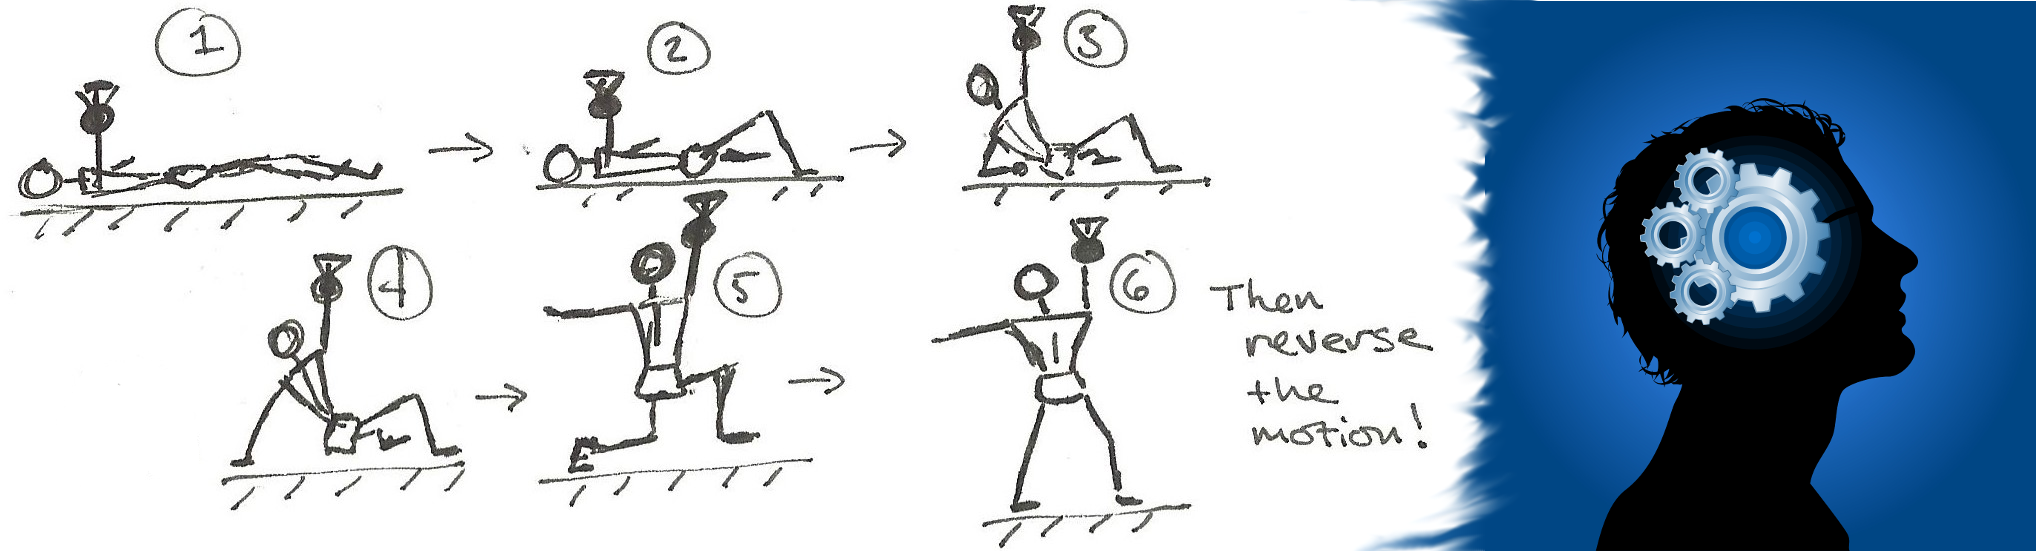 1
2
3
4
5
6
Then
reverse
the
motion!